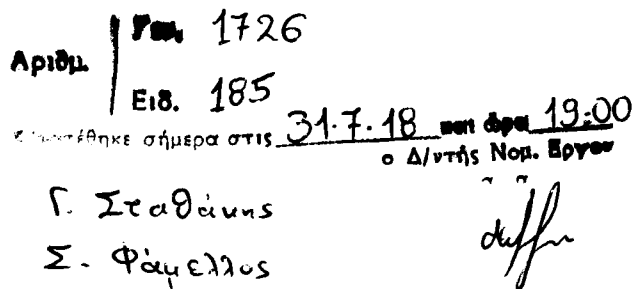 Αριθμ. Γεν. 1726
Ειδ. 185
Κατατέθηκε σήμερα στις 31.7.18 και ώρα 19:00
ο Δ/ντής Νομ. Έργου
Γ. Σταθάκης
Σ. Φάμελλος